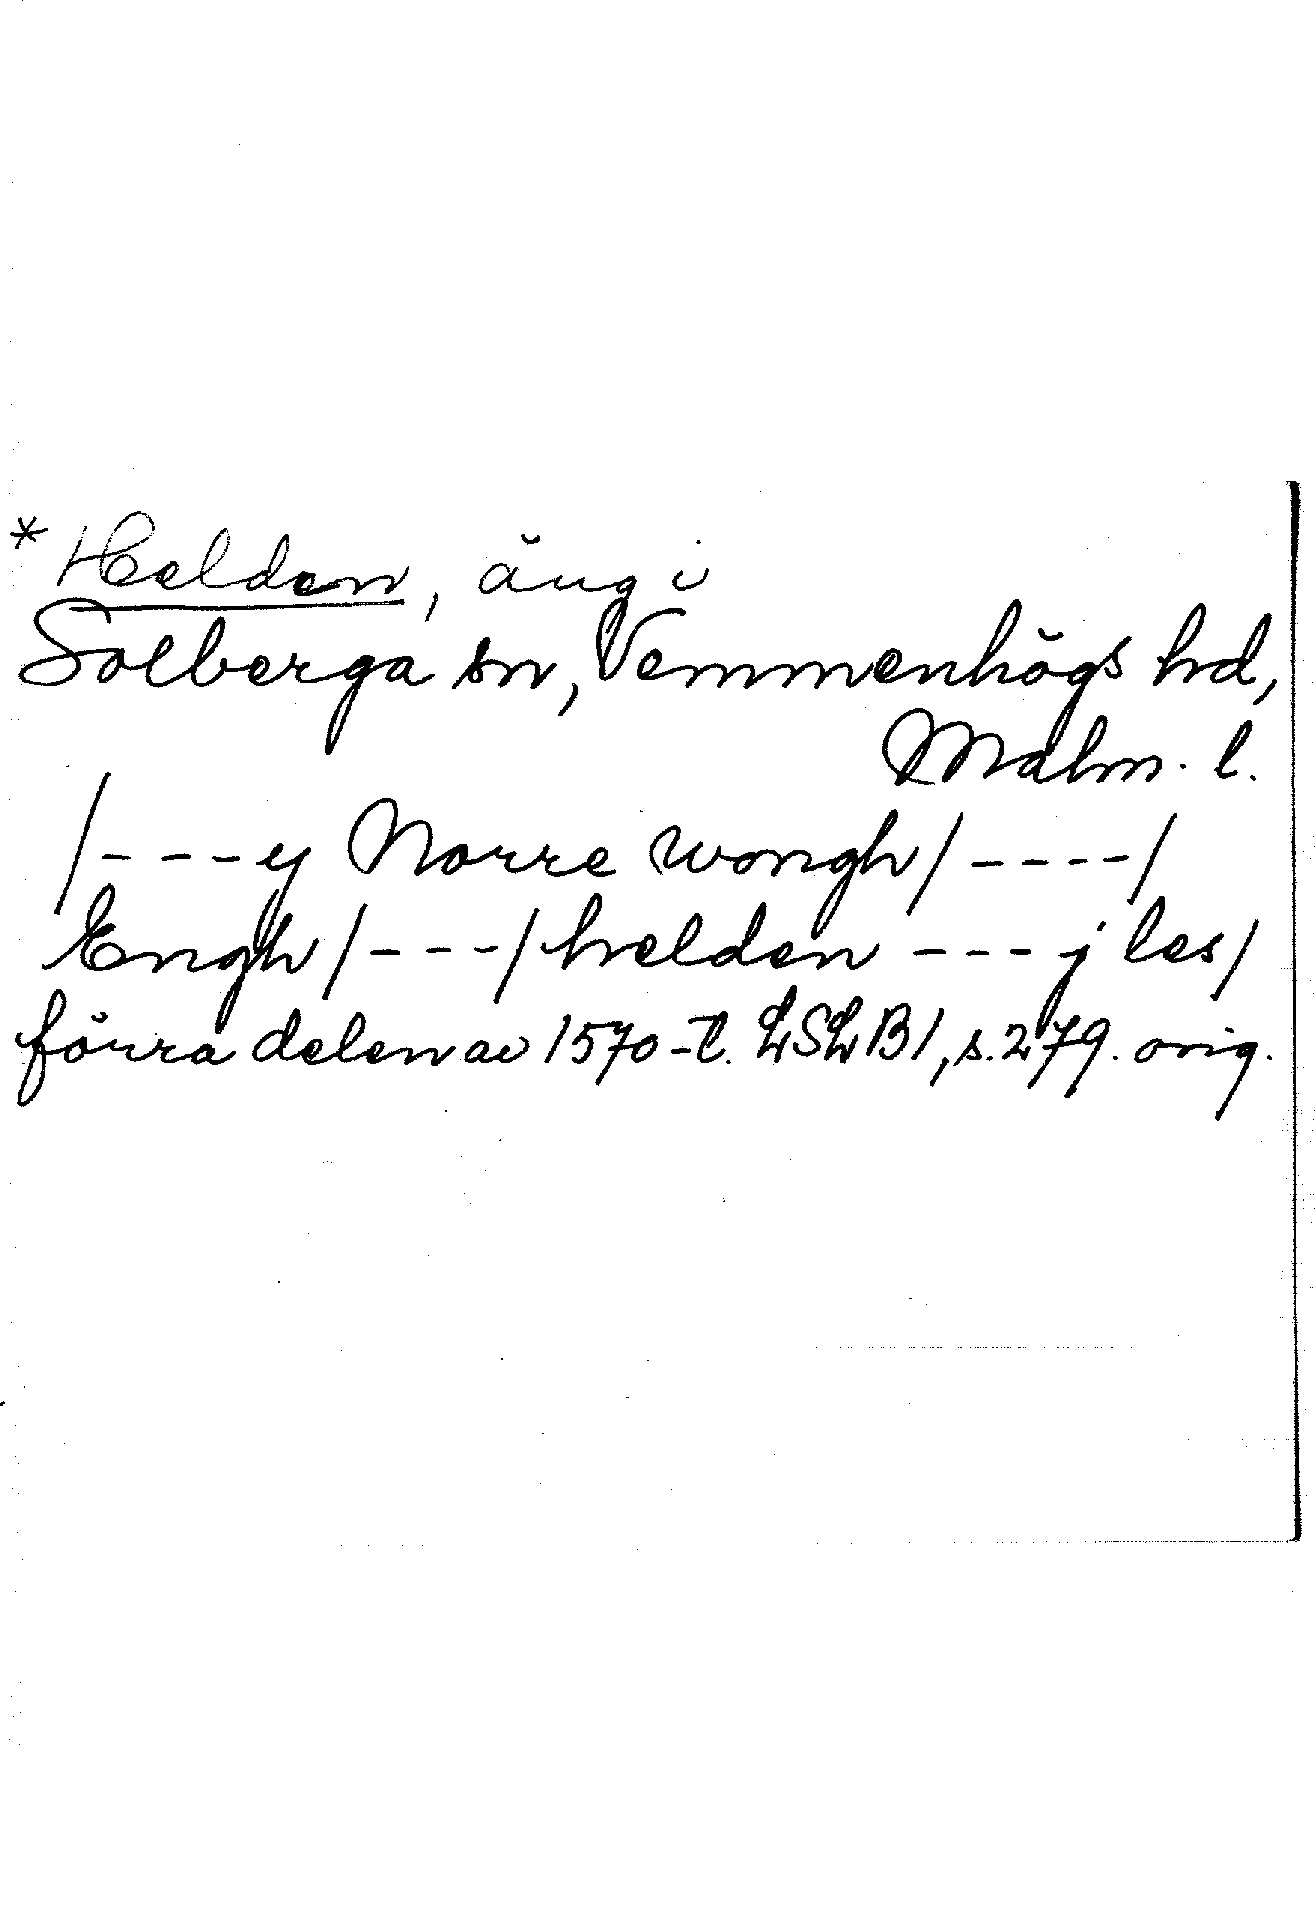 * Helden, äng i
Solberga sn, Vemmenhögs hd,
Malm. l.
/---y Norre wongh/----/
Engh/---/helden ---j les/
förra delen av 1570-t. LSLB1, s. 279. orig.